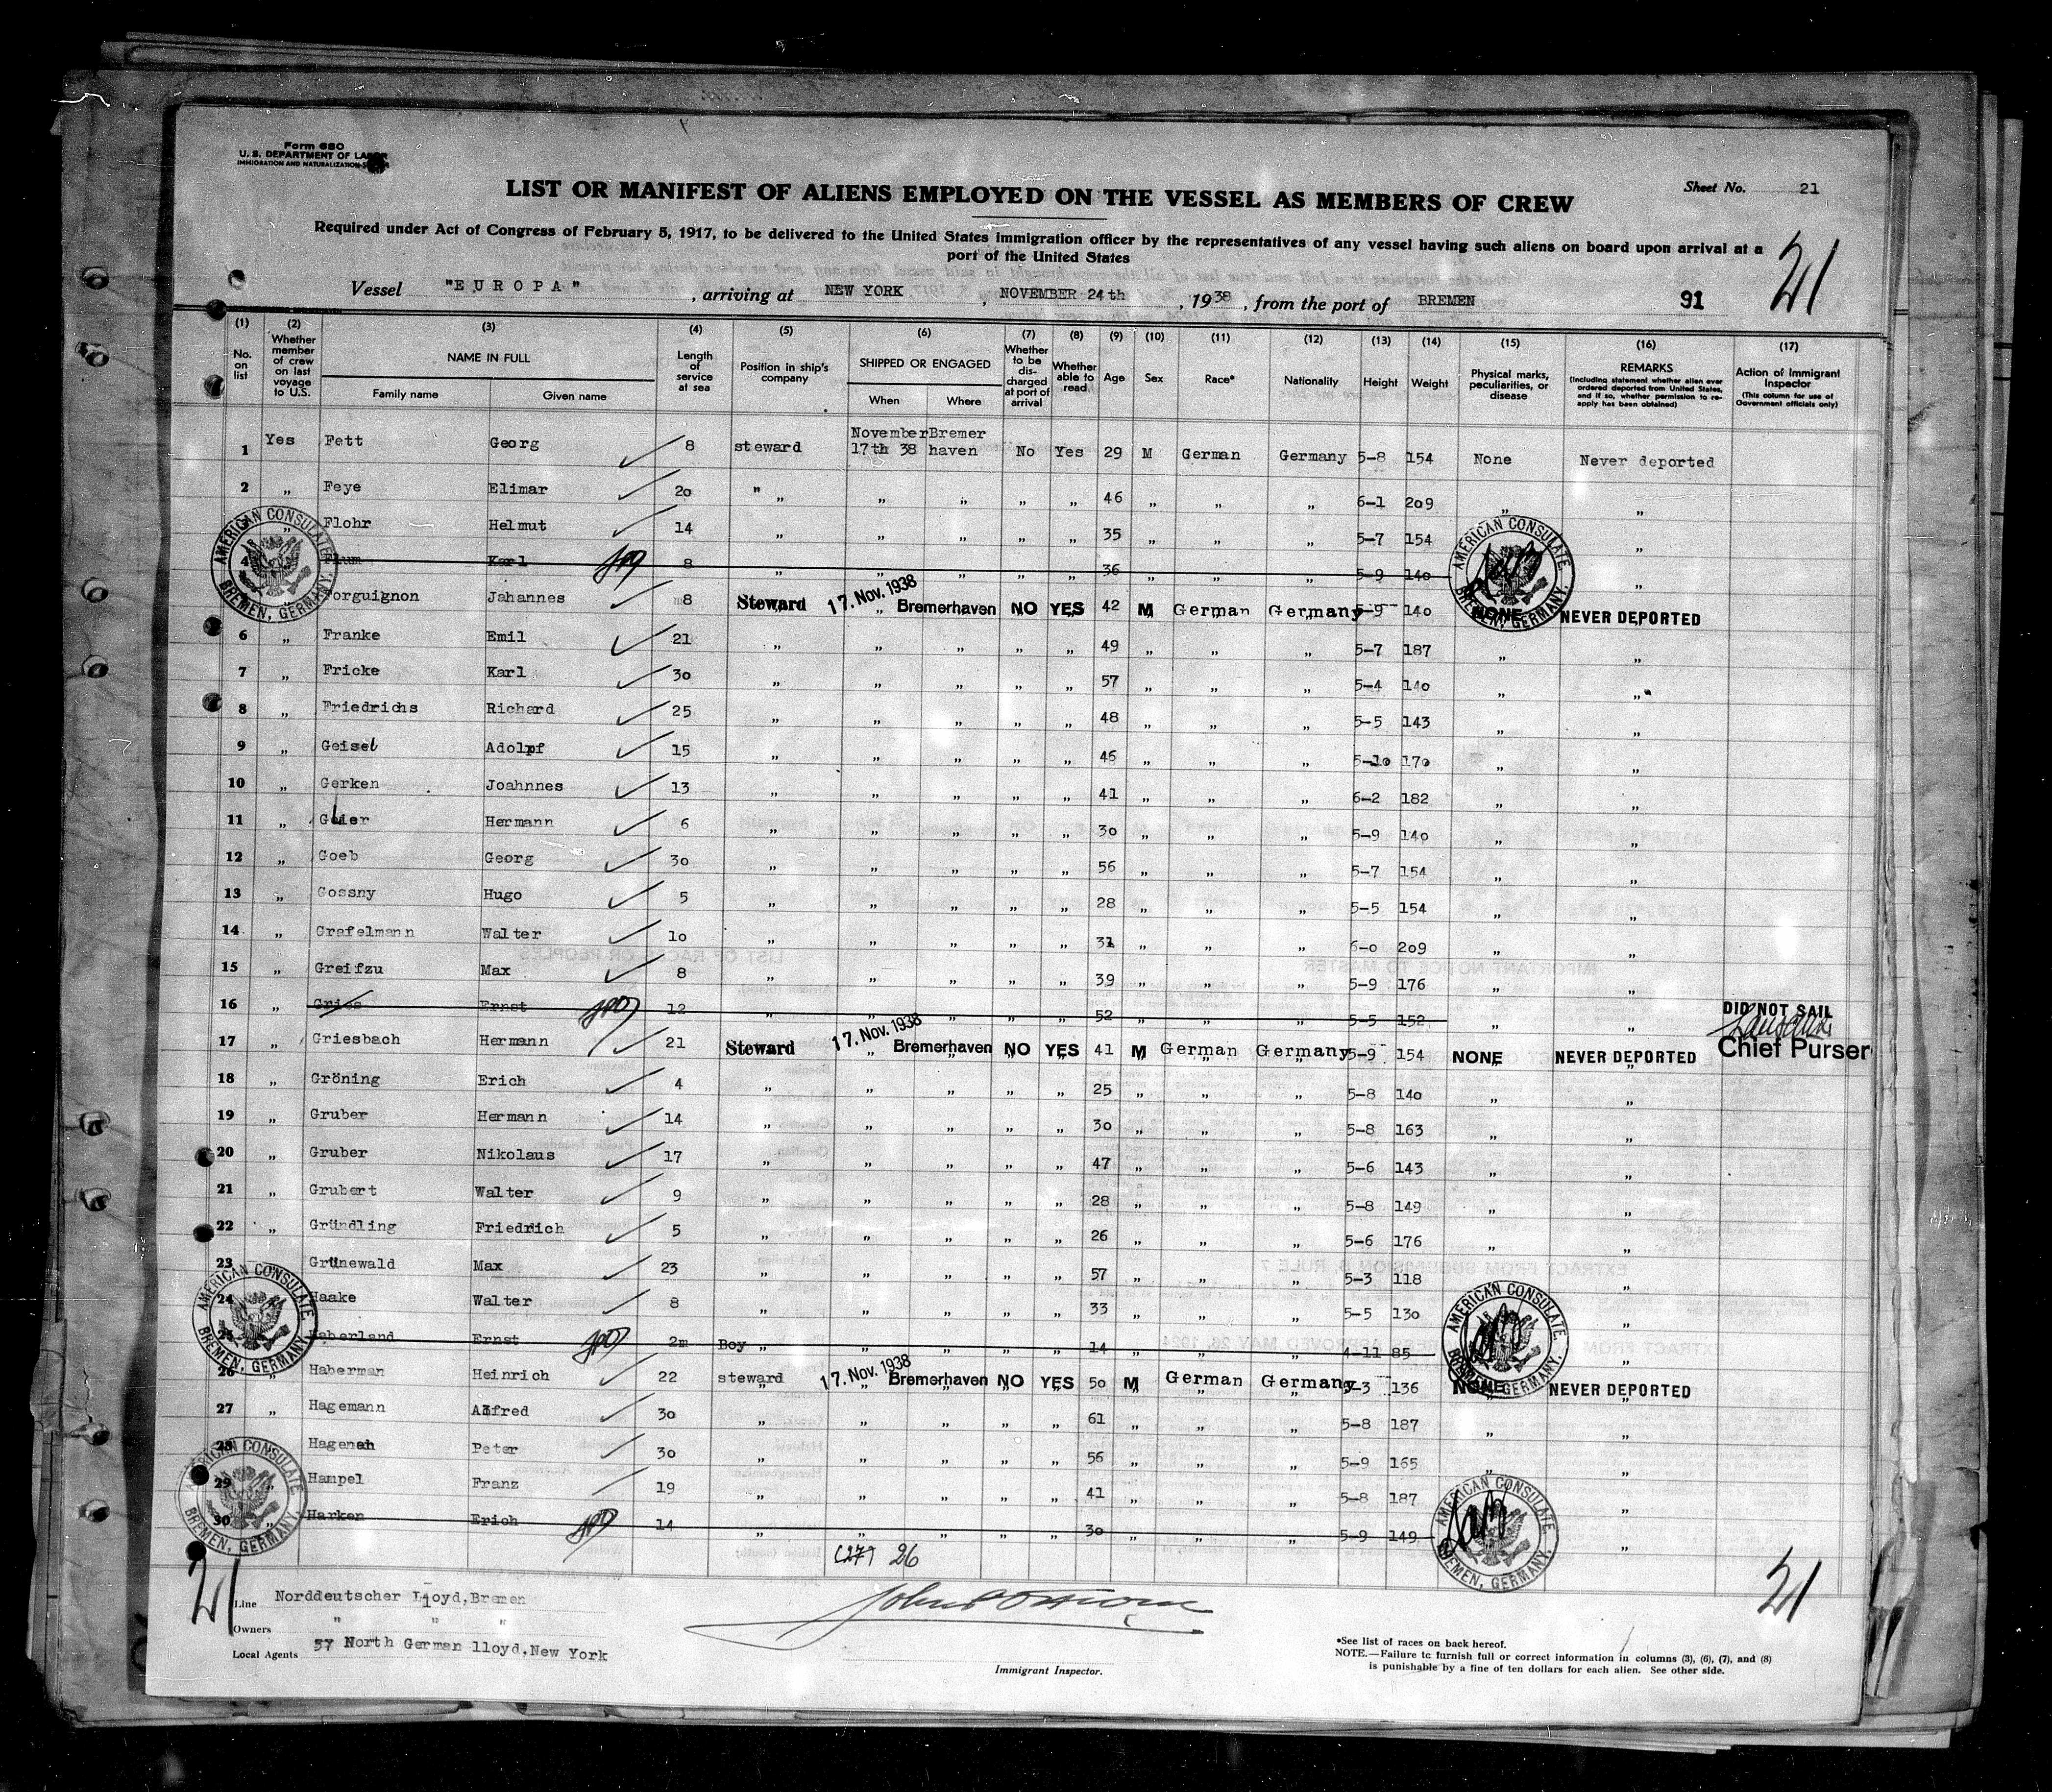 Form 680
U. S. DEPARTMENT OF LABOR
IMMIGRATION AND NATURALIZATION
Sheet No. 21
LIST OR MANIFEST OF ALIENS EMPLOYED ON THE VESSEL AS MEMBERS OF CREW
Required under Act of Congress of February 5, 1917, to be delivered to the United States immigration officer by the representatives of any vessel having such aliens on board upon arrival at a
port of the United States
21
Vessel "EUROPA", arriving at NEW YORK, NOVEMBER 24th, 1938, from the port of BREMEN 91
(1) (2) (3) (4) (5) (6) (7) (8) (9) (10) (11) (12) (13) (14) (15) (16) (17)
No. on list
Whether member of crew on last voyage to U.S.
NAME IN FULL
Family name
Given name
Length of service at sea
Position in ship's company
SHIPPED OR ENGAGED
When
Where
Whether to be discharged at port of arrival
Whether able to read
Age
Sex
Race*
Nationality
Height
Weight
Physical marks, peculiarities, or disease
REMARKS
(Including statement whether alien ever ordered deported from United States, and if so, whether permission to re-apply has been obtained)
Action of Immigrant Inspector
(This column for use of Government officials only)
1 Yes Fett Georg 8 steward November 17th 38 Bremer haven No Yes 29 M German Germany 5-8 154 None Never deported
2 " Feye Elimar 20 " " " " " " 46 " " " 6-1 209 " "
" Flohr Helmut 14 " " " " " 35 " " " 5-7 154 "
4 Karl 8 " " " " " 36 " " " 5-9 140 "
orguignon Jahannes 8 Steward 17. Nov. 1938 Bremerhaven NO YES 42 M German Germany 5-9 140 NONE NEVER DEPORTED
6 " Franke Emil 21 " " " " " 49 " " " 5-7 187 " "
7 " Fricke Karl 30 " " " " " 57 " " " 5-4 140 " "
8 " Friedrichs Richard 25 " " " " " 48 " " " 5-5 143 " "
9 " Geisel Adolpf 15 " " " " " 46 " " " 5-10 170 " "
10 " Gerken Joahnnes 13 " " " " " 41 " " " 6-2 182 " "
11 " Hermann 6 " " " " " 30 " " " 5-9 140 " "
12 " Goeb Georg 30 " " " " " 56 " " " 5-7 154 " "
13 " Gossny Hugo 5 " " " " " 28 " " " 5-5 154 " "
14 " Grafelmann Walter 10 " " " " " 31 " " " 6-0 209 " "
15 " Greifzu Max 8 " " " " " 39 " " " 5-9 176 " "
16 " Gries Ernst 12 " " " " " 52 " " " 5-5 152 " " DID NOT SAIL
17 " Griesbach Hermann 21 Steward 17. Nov. 1938 Bremerhaven NO YES 41 M German Germany 5-9 154 NONE NEVER DEPORTED Chief Purser
18 " Gröning Erich 4 " " " " " 25 " " " 5-8 140 " "
19 " Gruber Hermann 14 " " " " " 30 " " " 5-8 163 " "
20 " Gruber Nikolaus 17 " " " " " 47 " " " 5-6 143 " "
21 " Grubert Walter 9 " " " " " 28 " " " 5-8 149 " "
22 " Gründling Friedrich 5 " " " " " 26 " " " 5-6 176 " "
23 " Grünewald Max 23 " " " " " 57 " " " 5-3 118 " "
24 Haake Walter 8 " " " " " 33 " " " 5-5 130 "
25 Haberland Ernst 2m Boy " " " " " 14 " " " 4-11 85 "
26 " Haberman Heinrich 22 steward 17. Nov. 1938 Bremerhaven NO YES 50 M German Germany 5-3 136 NONE NEVER DEPORTED
27 " Hagemann Alfred 30 " " " " " 61 " " " 5-8 187 " "
28 Hagenah Peter 30 " " " " " 56 " " " 5-9 165 " "
29 " Hampel Franz 19 " " " " " 41 " " " 5-8 187 "
30 " Harken Erich 14 " " " " " 30 " " " 5-9 149 "
AMERICAN CONSULATE
BREMEN, GERMANY.
AMERICAN CONSULATE
BREMEN, GERMANY.
AMERICAN CONSULATE
BREMEN, GERMANY.
AMERICAN CONSULATE
BREMEN, GERMANY.
AMERICAN CONSULATE
BREMEN, GERMANY.
AMERICAN CONSULATE
BREMEN, GERMANY.
26
21
21
Line Norddeutscher Lloyd, Bremen
Owners " " "
Local Agents 57 North German lloyd, New York
Immigrant Inspector.
*See list of races on back hereof.
NOTE.—Failure to furnish full or correct information in columns (3), (6), (7), and (8)
is punishable by a fine of ten dollars for each alien. See other side.